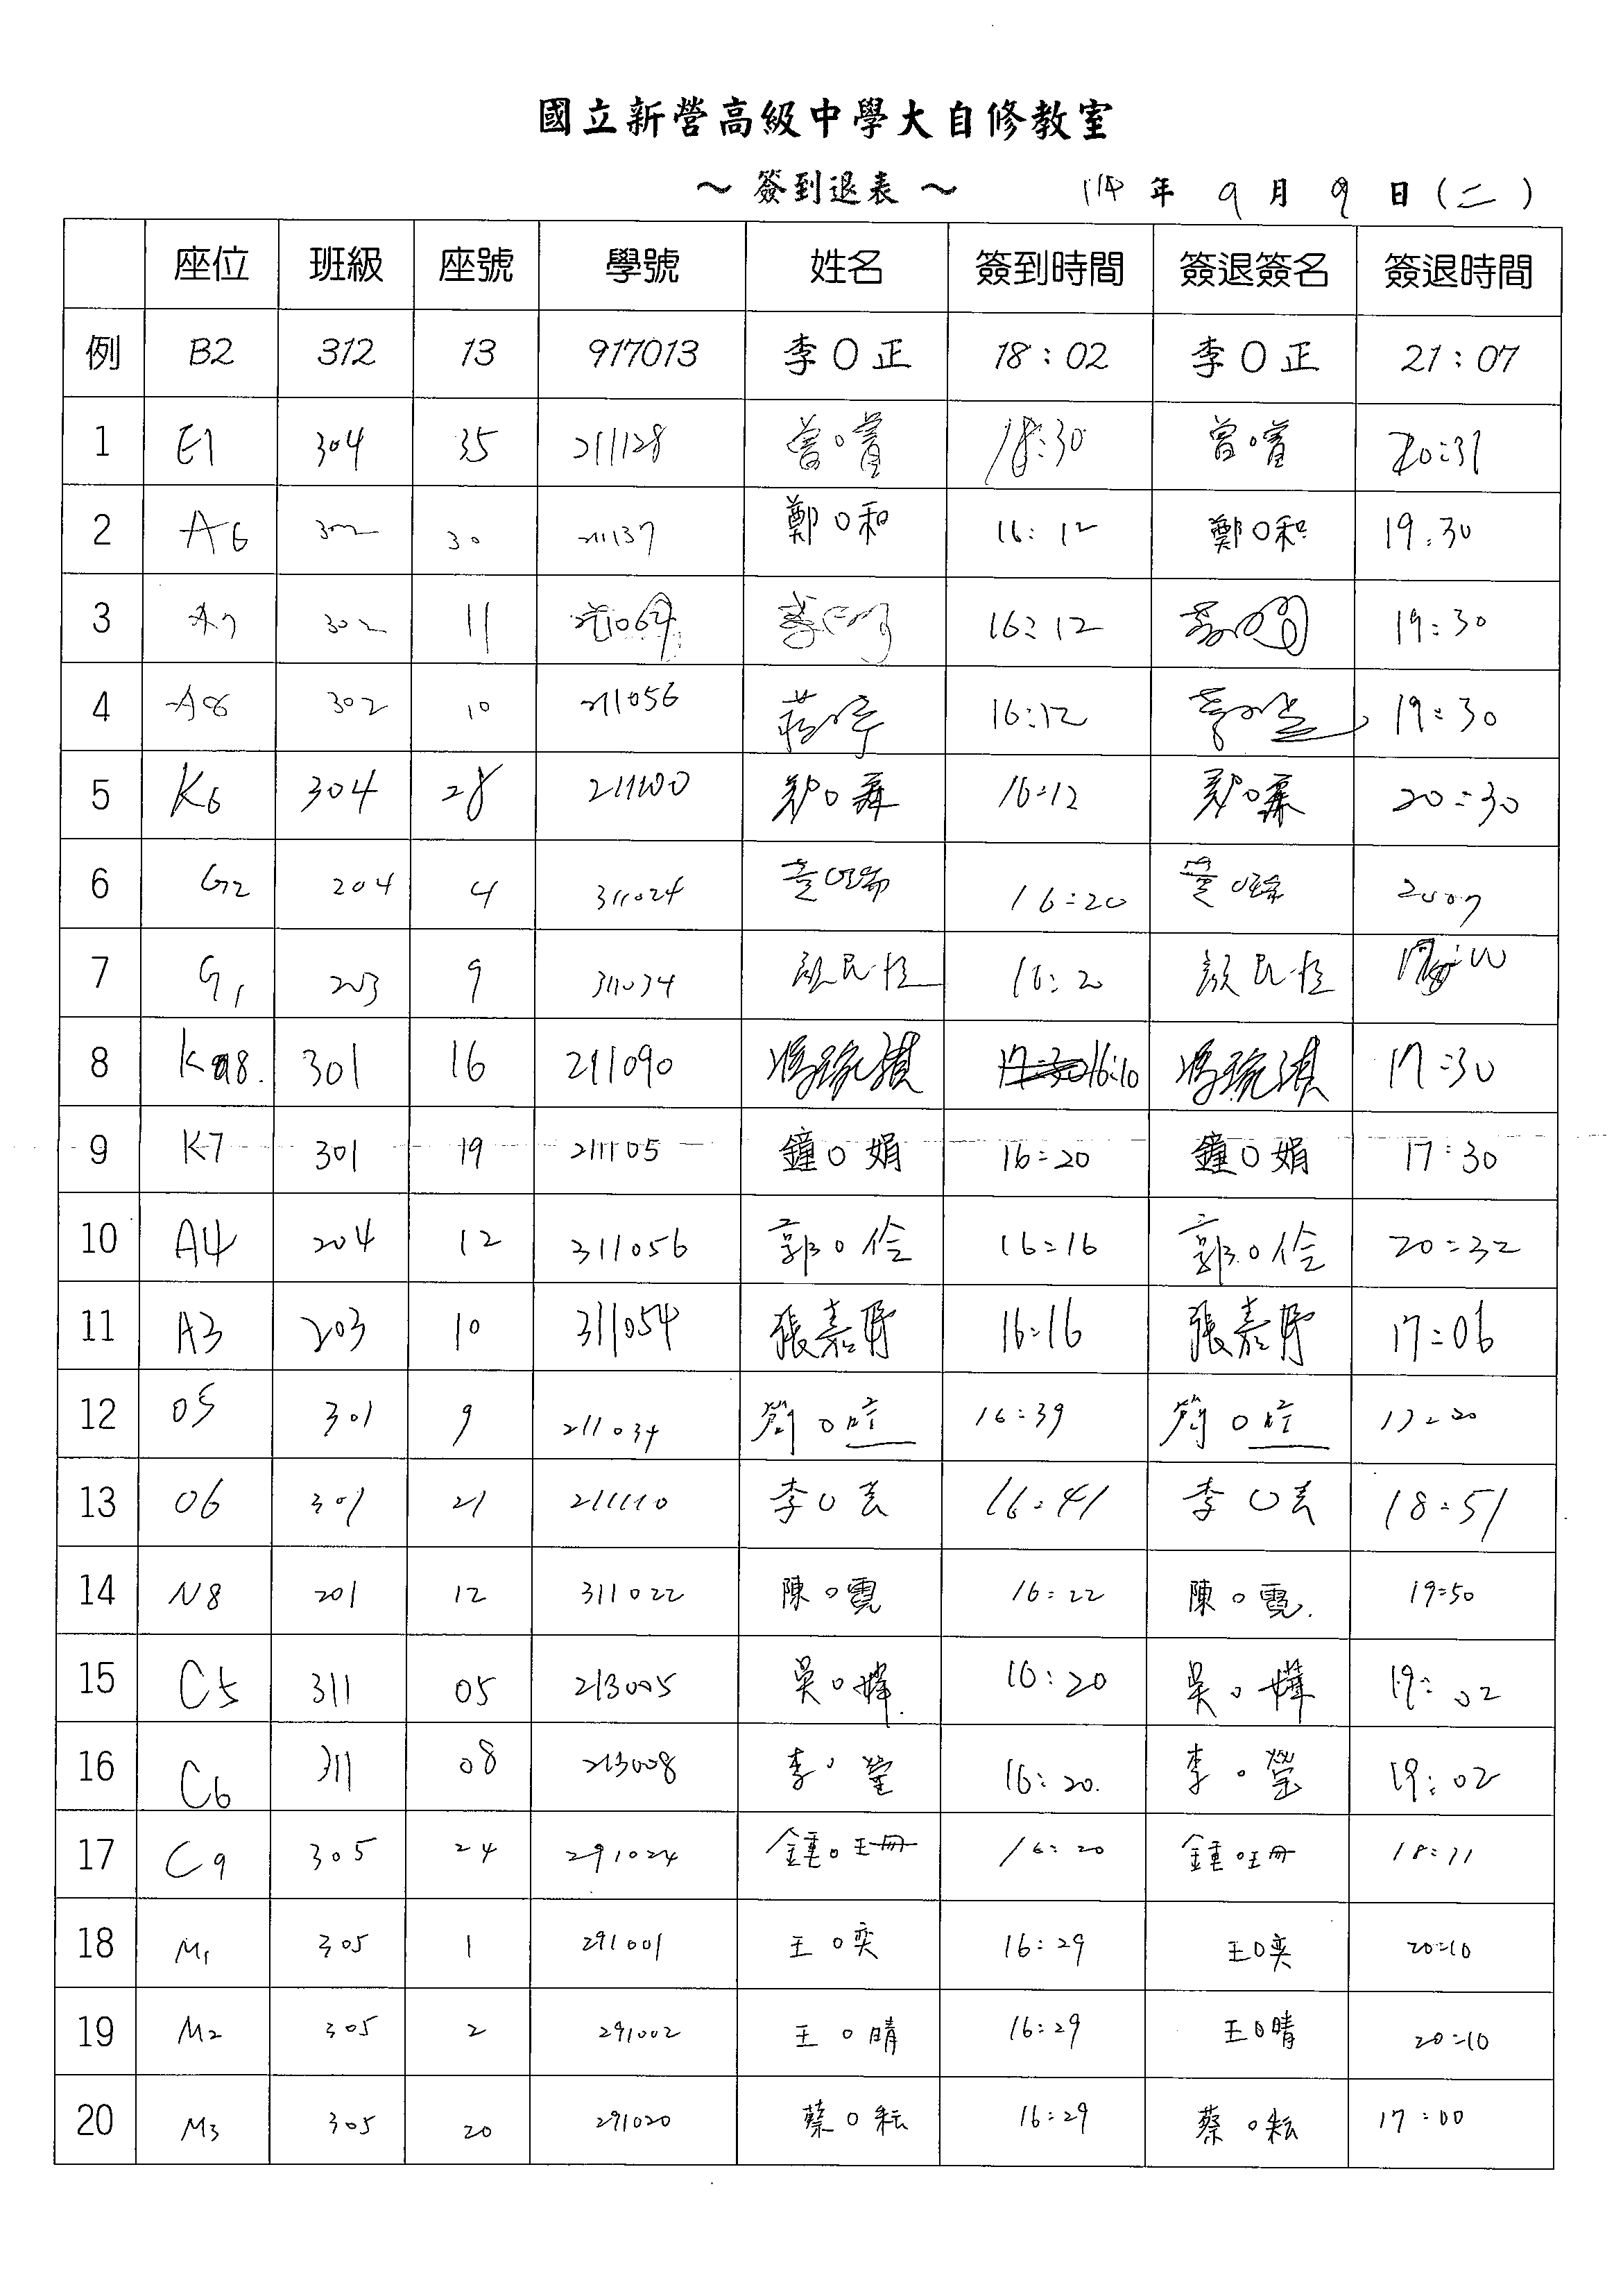 國立新營高級中學大自修教室
～ 簽到退表 ～ 114 年 9 月 9 日 (二)
座位 班級 座號 學號 姓名 簽到時間 簽退簽名 簽退時間
例 B2 312 13 917013 李O正 18:02 李O正 21:07
1 E1 304 35 211128 曾O 18:30 曾O 20:31
2 A6 302 30 211137 鄭O和 16:12 鄭O和 19:30
3 A7 302 11 16:12 19:30
4 A8 302 10 211056 16:12 19:30
5 K6 304 28 16:12 20:30
6 G2 204 4 311024 16:20
7 G1 203 9 311034 顏民恆 16:20 顏民恆
8 K8 301 16 211090 16:10 17:30
9 K7 301 19 211105 鐘O娟 16:20 鐘O娟 17:30
10 A4 204 12 311056 郭O伶 16:16 郭O伶 20:32
11 A3 203 10 311054 張嘉 16:16 張嘉 17:06
12 O5 301 9 211034 簡O 16:39 簡O 17:20
13 O6 301 21 211110 李O 16:41 李O 18:51
14 N8 201 12 311022 陳O霓 16:22 陳O霓 19:50
15 C5 311 05 213005 吳O嬅 16:20 吳O嬅 19:02
16 C6 311 08 213008 李O瑩 16:20 李O瑩 19:02
17 C9 305 24 291024 鍾O珊 16:20 鍾O珊 18:11
18 M1 305 1 291001 王O奕 16:29 王O奕 20:10
19 M2 305 2 291002 王O晴 16:29 王O晴 20:10
20 M3 305 20 291020 蔡O耘 16:29 蔡O耘 17:00